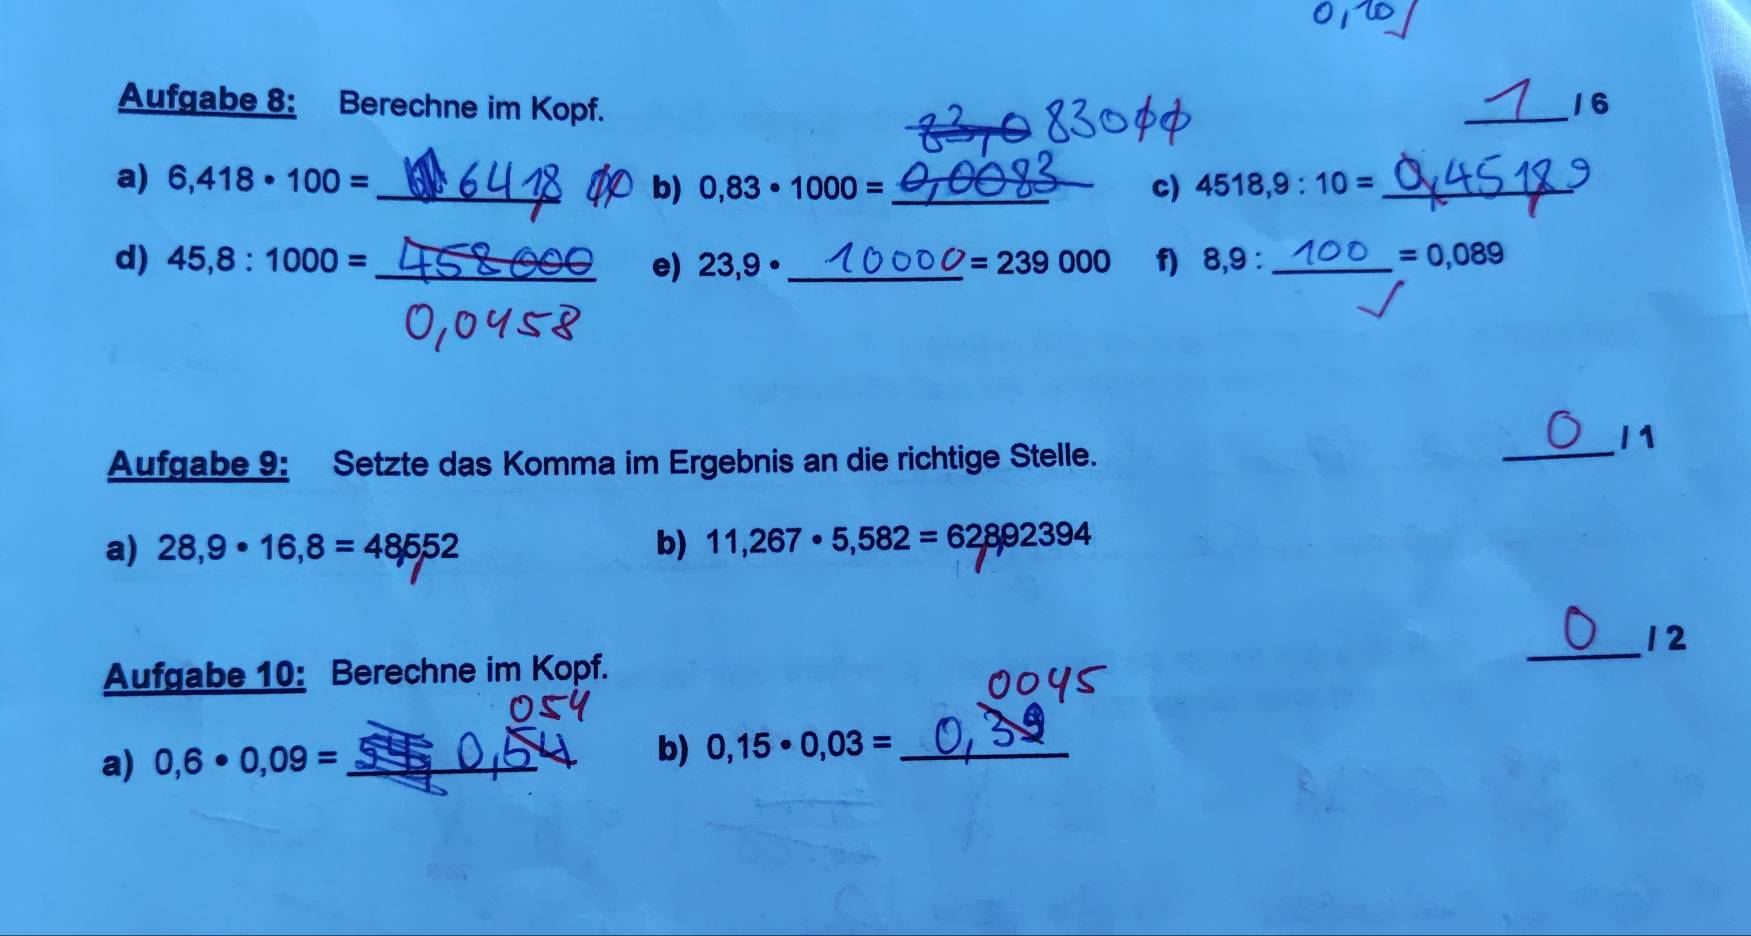 0,10
Aufgabe 8: Berechne im Kopf.
1 / 6
83,0 83000
a) 6,418 • 100 = 6418 00 b) 0,83 • 1000 = 0,0083 c) 4518,9 : 10 = 0,45189
d) 45,8 : 1000 = 458000 e) 23,9 • 10000 = 239 000 f) 8,9 : 100 = 0,089
0,0458
Aufgabe 9: Setzte das Komma im Ergebnis an die richtige Stelle.
0 / 1
a) 28,9 • 16,8 = 48552 b) 11,267 • 5,582 = 62892394
0 / 2
Aufgabe 10: Berechne im Kopf.
054 0045
a) 0,6 • 0,09 = 0,54 b) 0,15 • 0,03 = 0,39